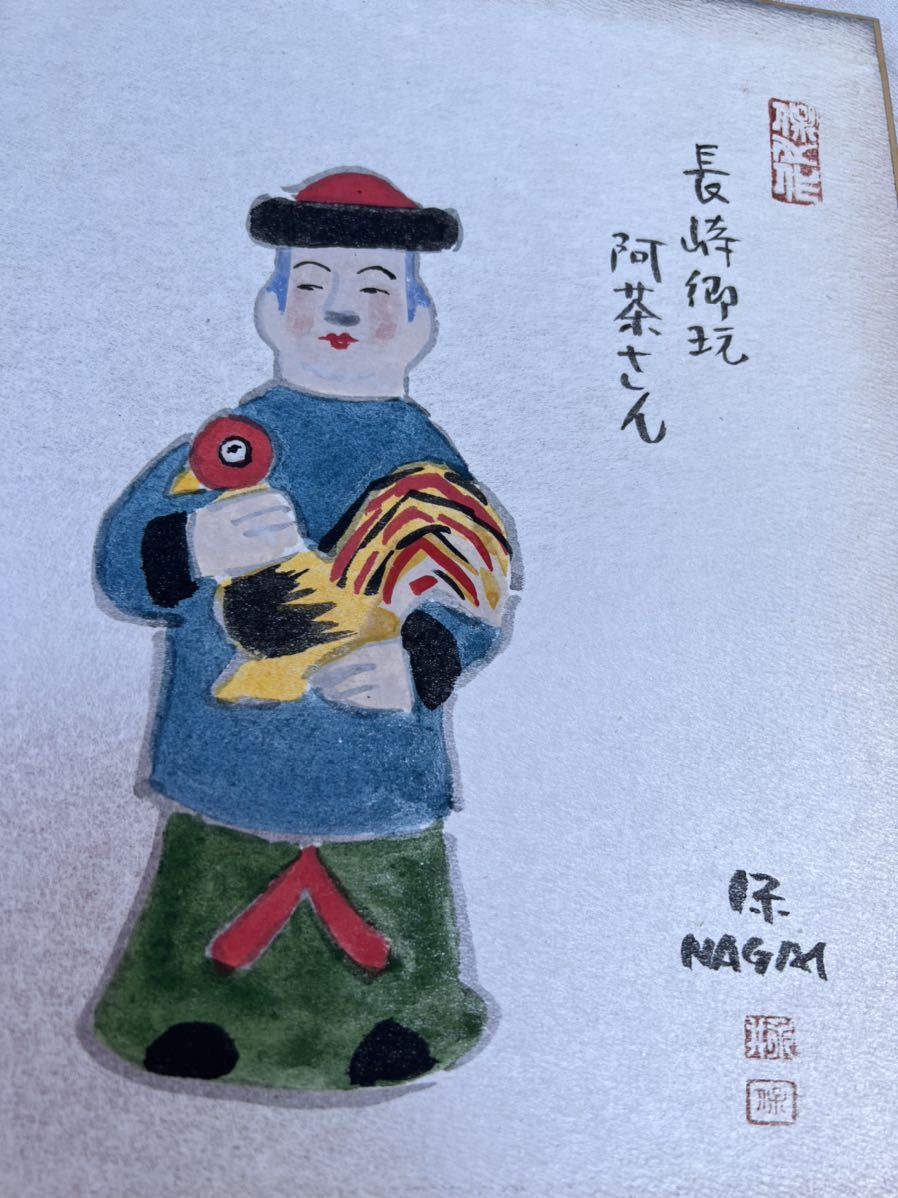 長崎郷玩
阿茶さん
保
NAGAI